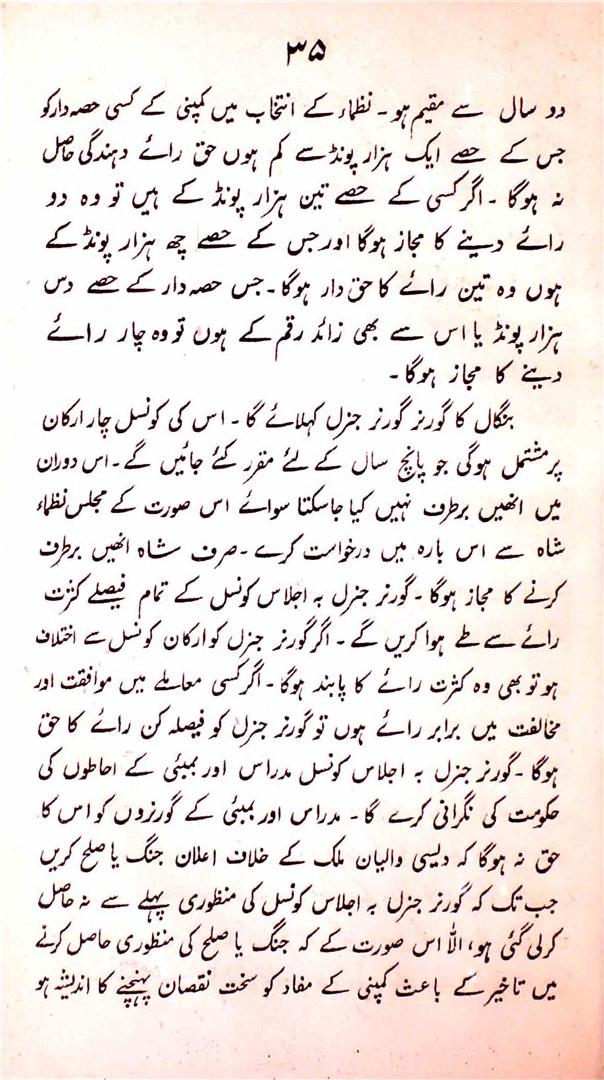 ۳۵
دو سال سے مقیم ہو ۔ نظماء کے انتخاب میں کمپنی کے کسی حصہ دار کو
جس کے حصے ایک ہزار پونڈ سے کم ہوں حق رائے دہندگی حاصل
نہ ہوگا ۔ اگر کسی کے حصے تین ہزار پونڈ کے ہیں تو وہ دو
رائے دینے کا مجاز ہوگا اور جس کے حصے چھ ہزار پونڈ کے
ہوں وہ تین رائے کا حق دار ہوگا ۔ جس حصہ دار کے حصے دس
ہزار پونڈ یا اس سے بھی زائد رقم کے ہوں تو وہ چار رائے
دینے کا مجاز ہوگا ۔
بنگال کا گورنر گورنر جنرل کہلائے گا ۔ اس کی کونسل چار ارکان
پر مشتمل ہوگی جو پانچ سال کے لئے مقرر کئے جائیں گے ۔ اس دوران
میں انھیں برطرف نہیں کیا جاسکتا سوائے اس صورت کے مجلس نظماء
شاہ سے اس بارہ میں درخواست کرے ۔ صرف شاہ انھیں برطرف
کرنے کا مجاز ہوگا ۔ گورنر جنرل بہ اجلاس کونسل کے تمام فیصلے کثرت
رائے سے طے ہوا کریں گے ۔ اگر گورنر جنرل کو ارکان کونسل سے اختلاف
ہو تو بھی وہ کثرت رائے کا پابند ہوگا ۔ اگر کسی معاملے میں موافقت اور
مخالفت میں برابر رائے ہوں تو گورنر جنرل کو فیصلہ کن رائے کا حق
ہوگا ۔ گورنر جنرل بہ اجلاس کونسل مدراس اور بمبئی کے احاطوں کی
حکومت کی نگرانی کرے گا ۔ مدراس اور بمبئی کے گورنروں کو اس کا
حق نہ ہوگا کہ دیسی والیان ملک کے خلاف اعلان جنگ یا صلح کریں
جب تک کہ گورنر جنرل بہ اجلاس کونسل کی منظوری پہلے سے نہ حاصل
کرلی گئی ہو، الّا اس صورت کے کہ جنگ یا صلح کی منظوری حاصل کرنے
میں تاخیر کے باعث کمپنی کے مفاد کو سخت نقصان پہنچنے کا اندیشہ ہو